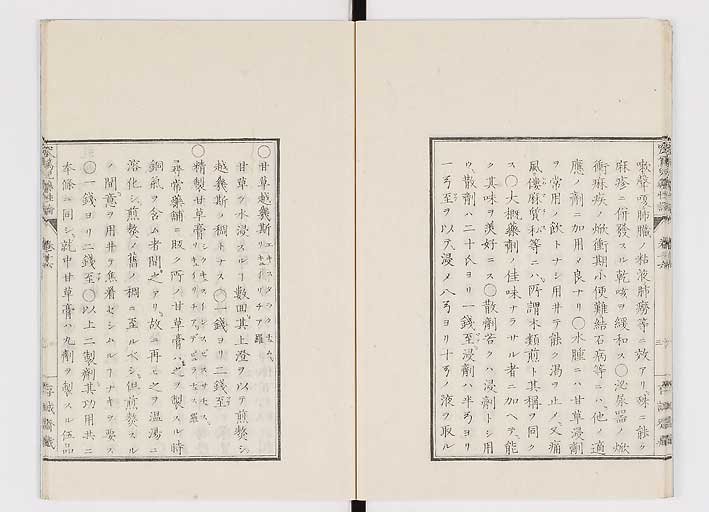 嗽聲嗄肺臓ノ粘液肺癆等ニ效アリ殊ニ能ク
麻疹ニ併發スル乾咳ヲ緩和ス〇泌尿器ノ焮
衝麻疾ノ焮衝期小便難結石病等ニハ他ノ適
應ノ劑ニ加用メ良ナリ〇水腫ニハ甘草浸劑
ヲ常用ノ飲トナシ用井テ能ク渇ヲ止ノ又痛
風僂麻質私等ニハ所謂木類煎ト其稱ヲ同ク
ス〇大概藥劑ノ佳味ナラサル者ニ加ヘテ能
ク其味ヲ美好ニス〇散劑若クハ浸劑トシ用
ウ散劑ハ二十氏ヨリ一錢至浸劑ハ半弓ヨリ
一弓至ヲ以テ浸メ八弓ヨリ十弓ノ液ヲ取ル
〇甘草越幾斯
甘草ヲ水浸スルヿ數回其上澄ヲ以テ煎熬シ
越幾斯ノ稠トナス〇一錢ヨリ二錢至
〇精製甘草膏
尋常藥舗ニ販ク所ノ甘草膏ハ之ヲ製スル時
銅氣ヲ含ム者間之アリ故ニ再ヒ之ヲ温湯ニ
溶化シ煎熬ノ舊ノ稠ニ至ルベシ但煎熬スル
ノ間意ヲ用井テ焦着セシムルヿナキヲ要ス
〇一錢ヨリ二錢至〇以上二製劑其功用共ニ
本條ニ同シ就中甘草膏ハ丸劑ヲ製スル伍品